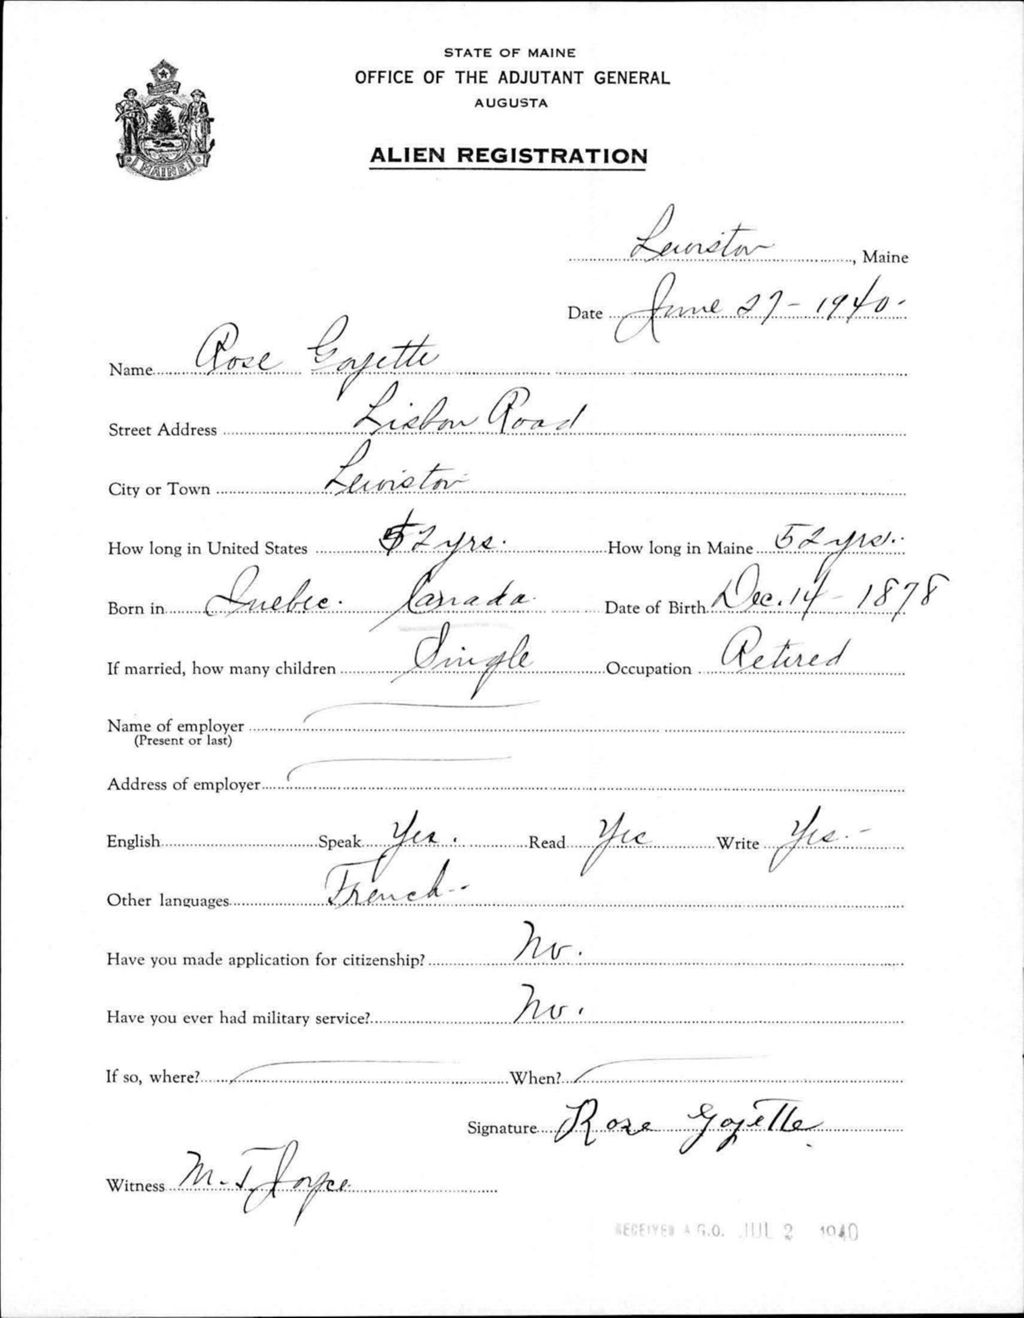 STATE OF MAINE
OFFICE OF THE ADJUTANT GENERAL
AUGUSTA
MAINE
ALIEN REGISTRATION
Lewiston, Maine
Date June 27 - 1940 -
Name Rose Goyette
Street Address Lisbon Road
City or Town Lewiston
How long in United States 52 yrs. How long in Maine 52 yrs.
Born in Quebec. Canada. Date of Birth Dec. 14 - 1878
If married, how many children Single Occupation Retired
Name of employer
(Present or last)
Address of employer
English Speak Yes. Read Yes Write Yes. -
Other languages French -
Have you made application for citizenship? No.
Have you ever had military service? No.
If so, where? When?
Signature Rose Goyette
Witness M. T. Joyce
RECEIVED A.G.O. JUL 2 1940